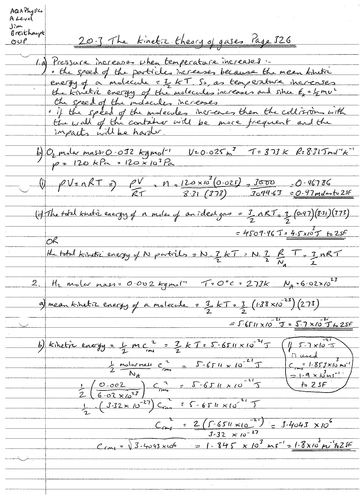 AQA Physics
A Level
Jim
Breithaupt
OUP
20.3 The kinetic theory of gases Page 326
1.a) Pressure increases when temperature increases :-
• the speed of the particles increases because the mean kinetic
energy of a molecule = 3/2 kT. So, as temperature increases
the kinetic energy of the molecules increases and since Ek = ½mv²
the speed of the molecules increases
• if the speed of the molecules increases then the collisions with
the wall of the container will be more frequent and the
impacts will be harder
b) O₂ molar mass = 0.032 kgmol⁻¹ V = 0.025 m³ T = 373k R = 8.31 Jmol⁻¹k⁻¹
p = 120 kPa = 120 x10³Pa
(i) pV = nRT ⇒ pV/RT = n = 120x10³(0.025) / 8.31 (373) = 3000 / 3099.63 = 0.96786 = 0.97 mol to 2SF
(ii) The total kinetic energy of n moles of an ideal gas = 3/2 nRT = 3/2 (0.97)(8.31)(373)
= 4509.96 J = 4.5x10³ J to 2SF
OR
the total kinetic energy of N particles = N. 3/2 kT = N. 3/2 R/NA T = 3/2 nRT
2. H₂ molar mass = 0.002 kgmol⁻¹ T = 0°C = 273k NA = 6.02x10²³
a) mean kinetic energy of a molecule = 3/2 kT = 3/2 (1.38x10⁻²³)(273)
= 5.6511x10⁻²¹J = 5.7x10⁻²¹J to 2SF
b) kinetic energy = ½ m c²rms = 3/2 kT = 5.6511x10⁻²¹J
½ molar mass/NA c²rms = 5.6511 x10⁻²¹J
½ (0.002 / 6.02x10²³) c²rms = 5.6511x10⁻²¹J
½ (3.32 x10⁻²⁷) c²rms = 5.6511 x10⁻²¹ J
c²rms = 2(5.6511 x10⁻²¹) / 3.32 x10⁻²⁷ = 3.4043 x10⁶
Crms = √3.4043x10⁶ = 1.845 x10³ ms⁻¹ = 1.8x10³ms⁻¹ to 2SF
If 5.7x10⁻²¹J
is used
Crms = 1.853x10³ms⁻¹
= 1.9 x10³ms⁻¹
to 2SF